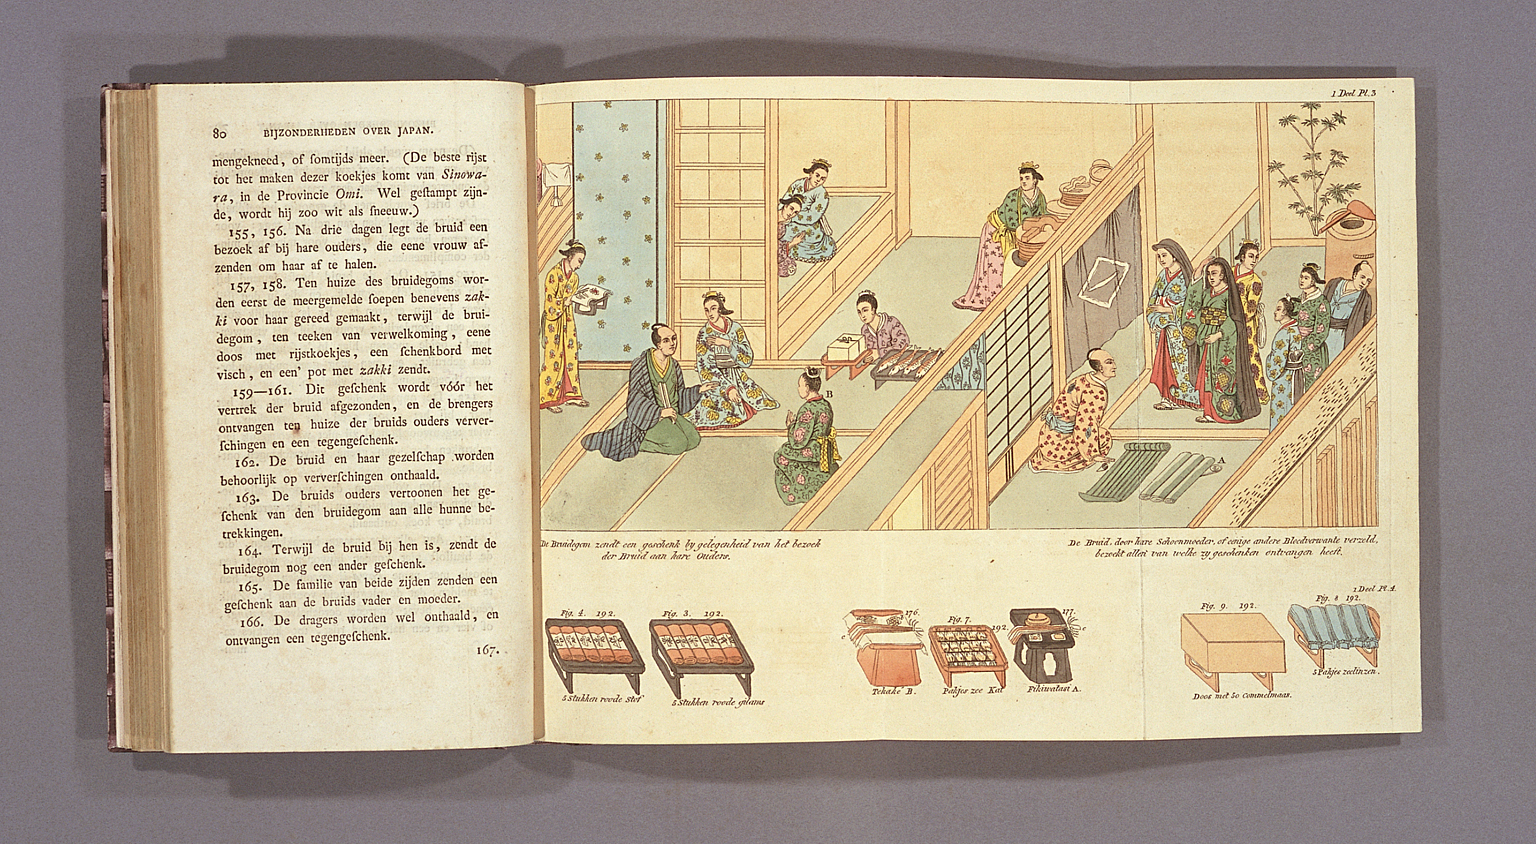 80 BIJZONDERHEDEN OVER JAPAN.
mengekneed, of ſomtijds meer. (De beste rijst
tot het maken dezer koekjes komt van Sinowa-
ra, in de Provincie Omi. Wel geſtampt zijn-
de, wordt hij zoo wit als ſneeuw.)
155, 156. Na drie dagen legt de bruid een
bezoek af bij hare ouders, die eene vrouw af-
zenden om haar af te halen.
157, 158. Ten huize des bruidegoms wor-
den eerst de meergemelde ſoepen benevens zak-
ki voor haar gereed gemaakt, terwijl de brui-
degom, ten teeken van verwelkoming, eene
doos met rijstkoekjes, een ſchenkbord met
visch, en een' pot met zakki zendt.
159—161. Dit geſchenk wordt vóór het
vertrek der bruid afgezonden, en de brengers
ontvangen ten huize der bruids ouders verver-
ſchingen en een tegengeſchenk.
162. De bruid en haar gezelſchap worden
behoorlijk op ververſchingen onthaald.
163. De bruids ouders vertoonen het ge-
ſchenk van den bruidegom aan alle hunne be-
trekkingen.
164. Terwijl de bruid bij hen is, zendt de
bruidegom nog een ander geſchenk.
165. De familie van beide zijden zenden een
geſchenk aan de bruids vader en moeder.
166. De dragers worden wel onthaald, en
ontvangen een tegengeſchenk.
167.
1 Deel Pl. 3
B
A
De Bruidegom zendt een geschenk by gelegenheid van het bezoek
der Bruid aan hare Ouders.
De Bruid, door hare Schoonmoeder, of eenige andere Bloedverwante verzeld,
bezoekt allen van welke zy geschenken ontvangen heeft.
1 Deel Pl. 4
Fig. 4. 192.
5 Stukken roode Stof
Fig. 3. 192.
5 Stukken roode gilams
176.
c
Tekake B.
Fig. 7.
192.
Pakjes zee Kat
177.
c
Fikiwatasi A.
Fig. 9. 192.
Doos met 50 Commelmaas.
Fig. 8 192.
5 Pakjes zeelinzen.